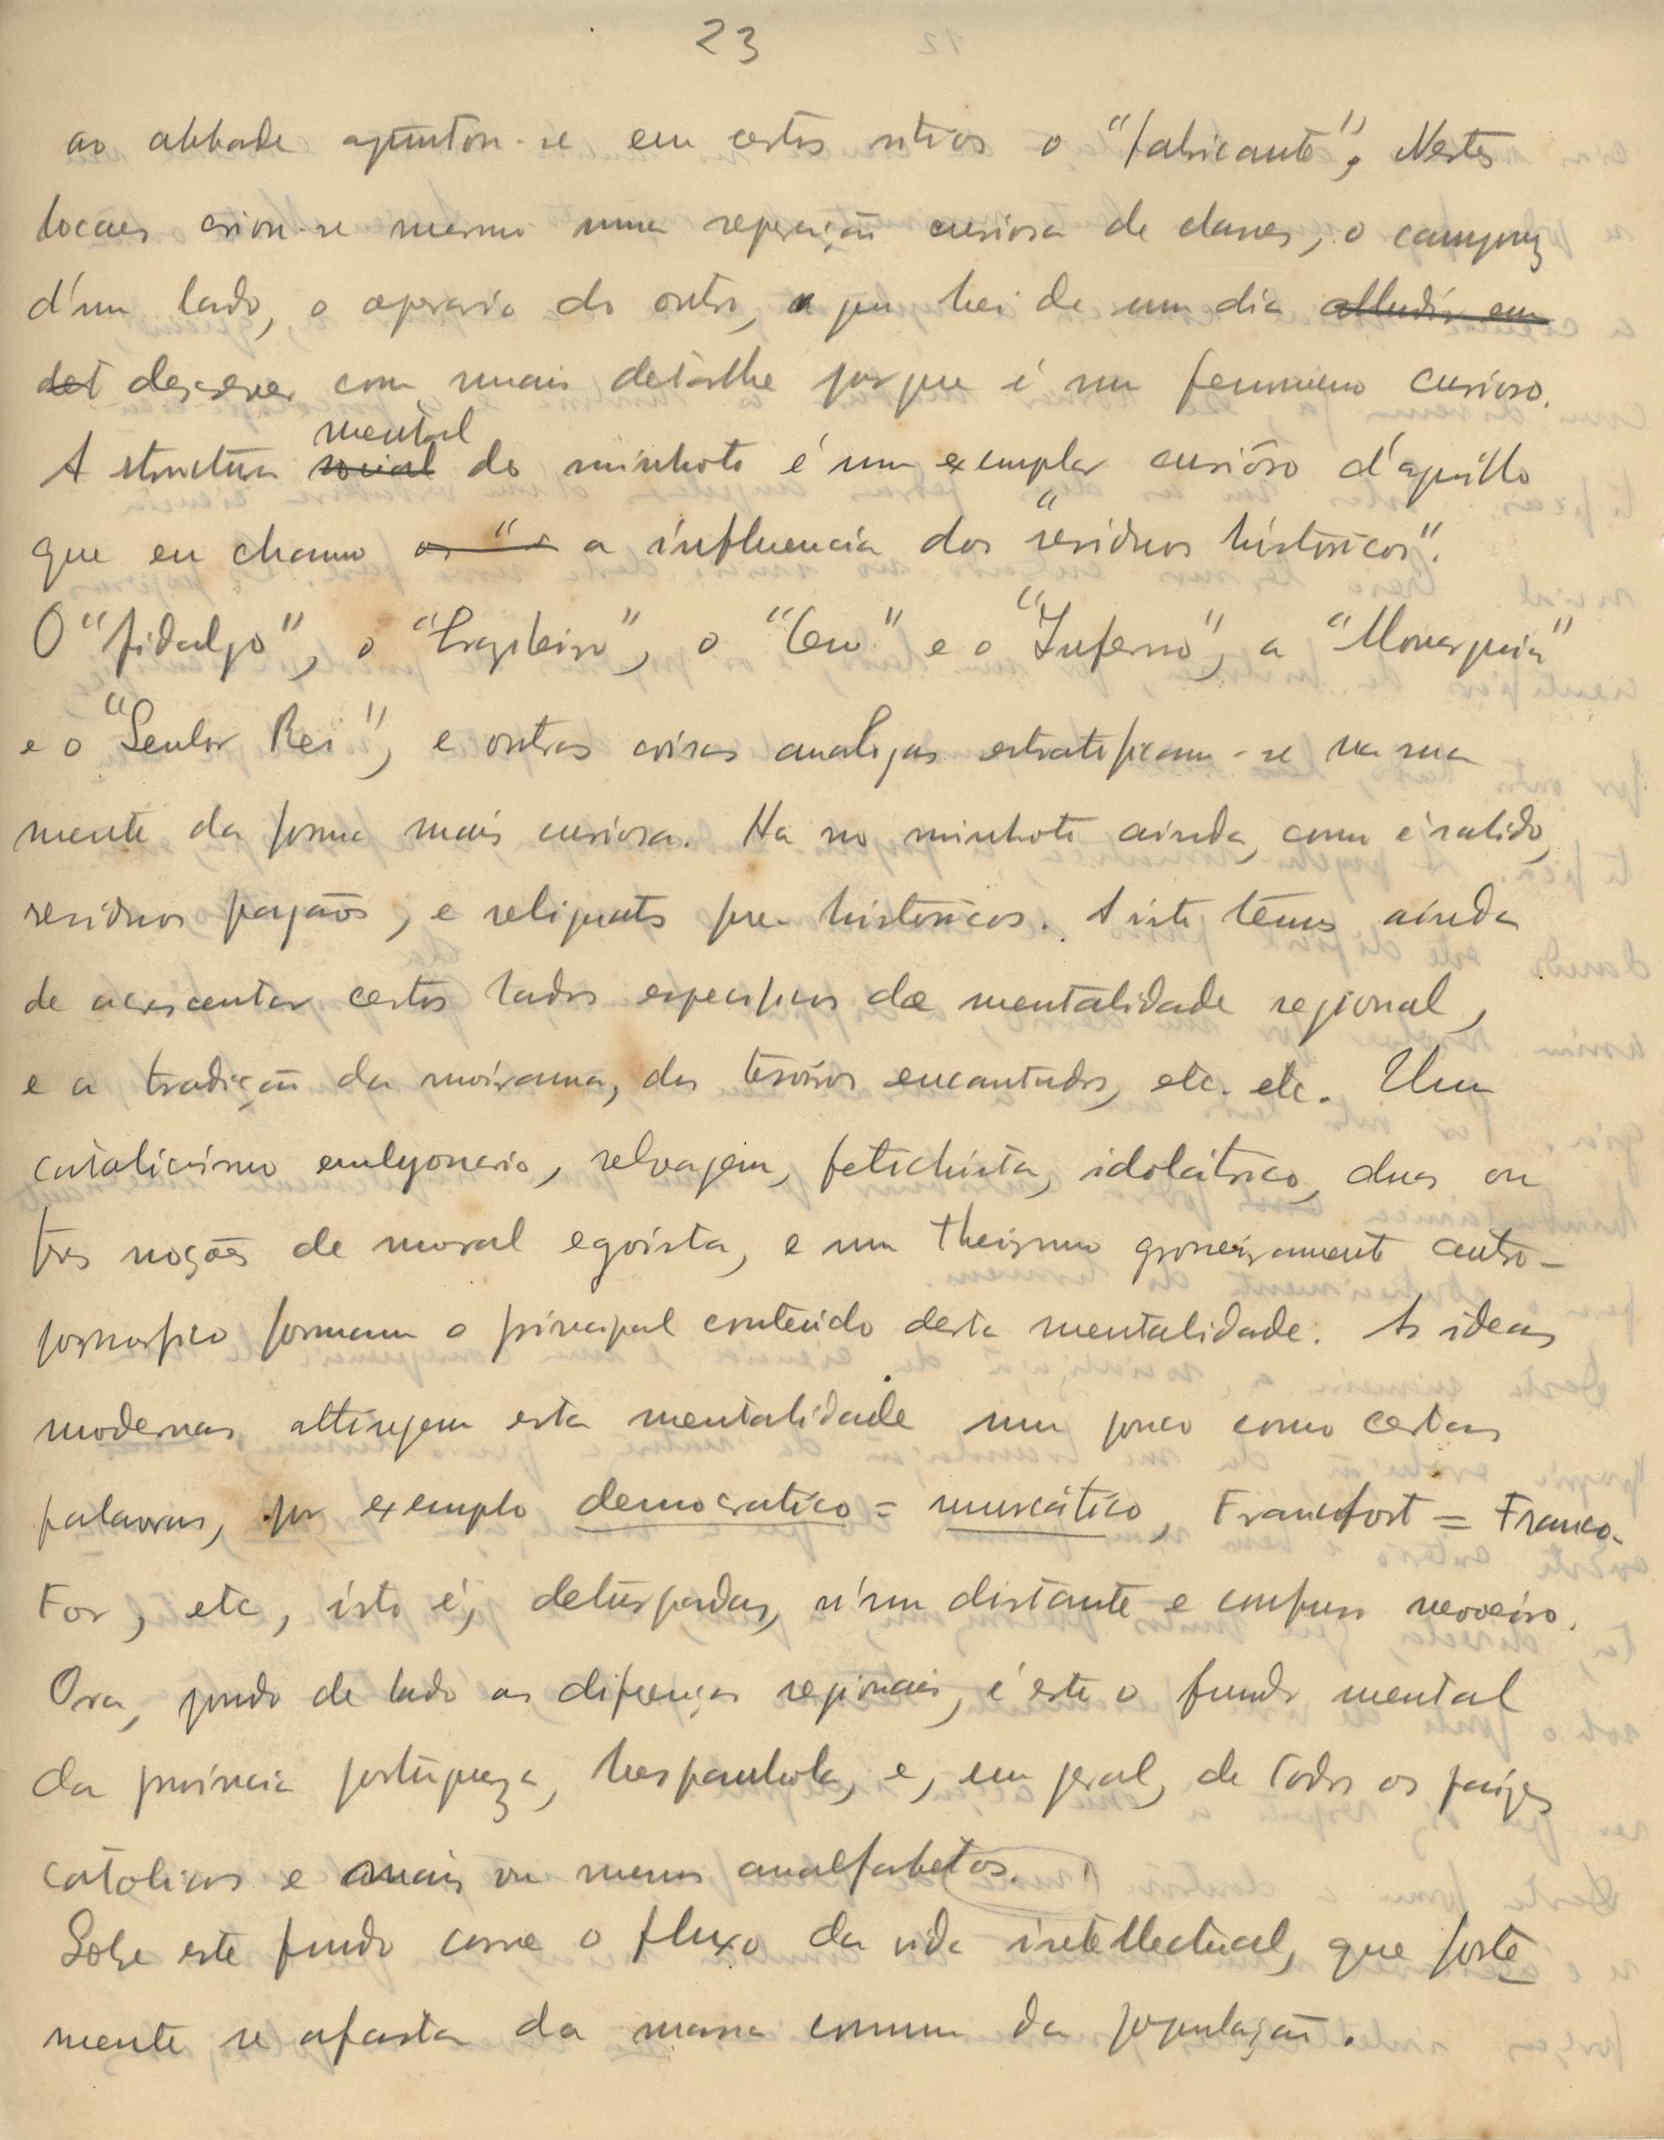 23
ao abbade ajuntou-se em certos sitios o "fabricante", Nestes
locaes criou-se mesmo uma separação curiosa de classes, o camponez
d'um lado, o operario do outro, a que hei de um dia alludir em
det descrever com mais detalhe porque é um fenomeno curioso.
mental
A structura social do minhoto é um exemplar curiôso d'aquillo
que eu chamo os " a influencia dos "residuos historicos".
O "fidalgo", o "brazileiro", o "Ceu" e o "Inferno", a "Monarquia"
e o "Senhor Rei", e outras coisas analogas estratificam-se na sua
mente da forma mais curiosa. Ha no minhoto ainda, como é sabido,
residuos pagãos, e reliquats pre-historicos. A isto temos ainda
de acrescentar certos lados especificos da mentalidade regional,
e a tradição da moirama, dos tesoiros encantados, etc. etc. Um
catolicismo embryonario, selvagem, fetichista, idolátrico, duas ou
tres noções de moral egoista, e um theismo grosseiramente antro-
pomorfico formam o principal conteúdo desta mentalidade. As ideas
modernas attingem esta mentalidade um pouco como certas
palavras, por exemplo democratico = muscático, Francfort = Franco-
For, etc, isto é, deturpadas, n'um distante e confuso nevoeiro.
Ora, pondo de lado as diferenças regionais, é este o fundo mental
da provincia portugueza, hespanhola, e, em geral, de todos os paizes
catolicos e mais ou menos analfabetos.
Sobre este fundo corre o fluxo da vida intellectual, que forte
mente se afasta da massa comum da população.